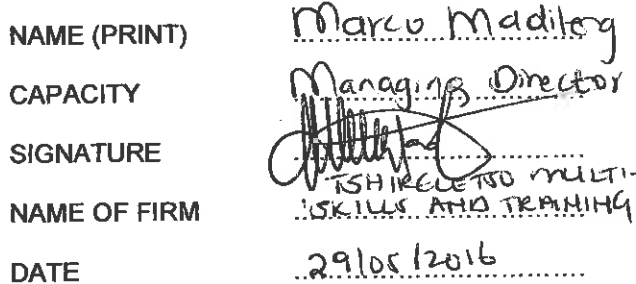 NAME (PRINT) Marco Madileng
CAPACITY Managing Director
SIGNATURE
TSHIRELETSO MULTI-
NAME OF FIRM SKILLS AND TRAINING
DATE 29/05/2016